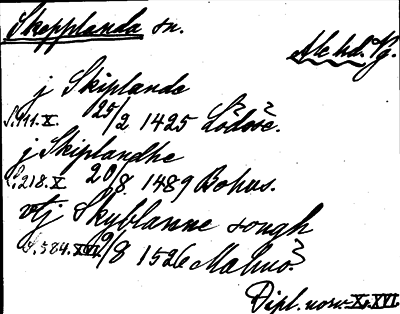 Skepplanda sn.
Ale hd. Vg.
j Skiplande
S. 111. X. 25/2 1425 Lödöse.
j Skiplandhe
S. 218. X 20/8 1489 Bohus.
vtj Skyblanne soogh
S. 584. XVI. 19/8 1526 Malmö.
Dipl. norv. X, XVI